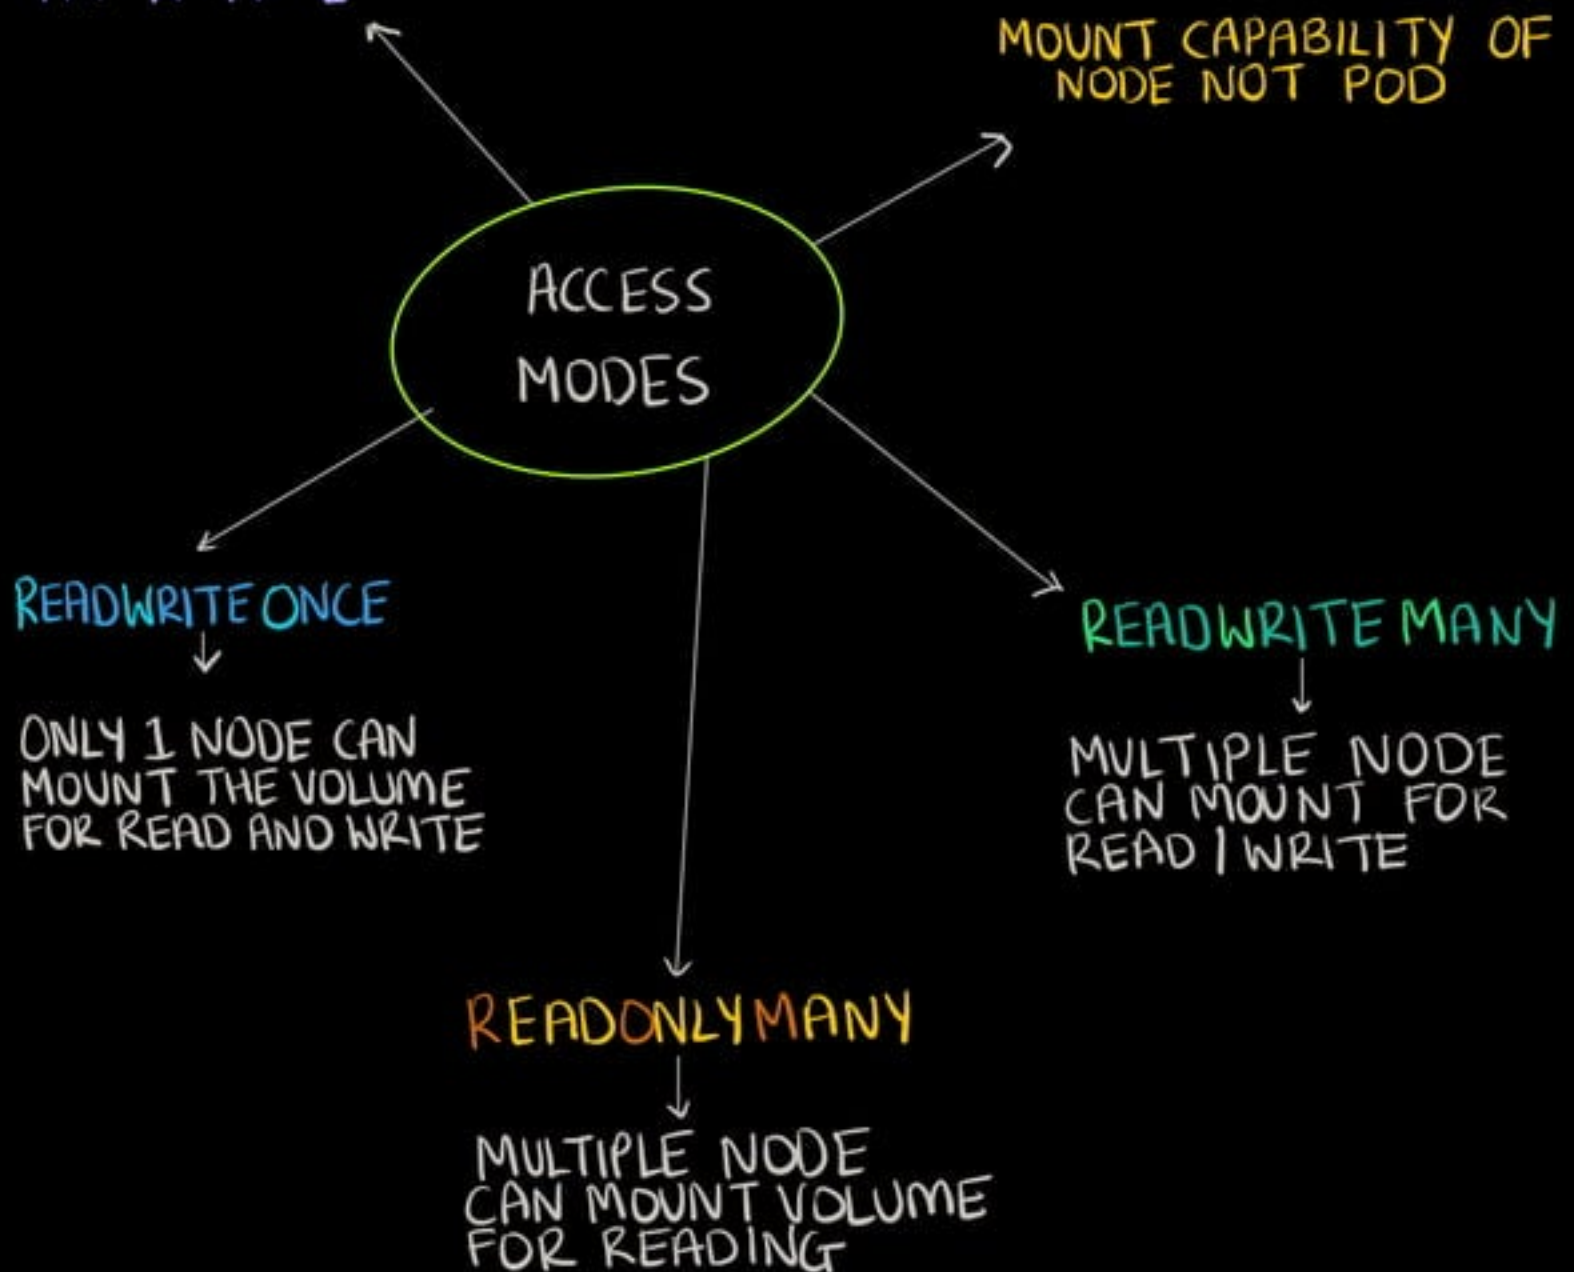 MOUNT CAPABILITY OF
NODE NOT POD
ACCESS
MODES
READWRITE ONCE
ONLY 1 NODE CAN
MOUNT THE VOLUME
FOR READ AND WRITE
READWRITE MANY
MULTIPLE NODE
CAN MOUNT FOR
READ | WRITE
READONLYMANY
MULTIPLE NODE
CAN MOUNT VOLUME
FOR READING